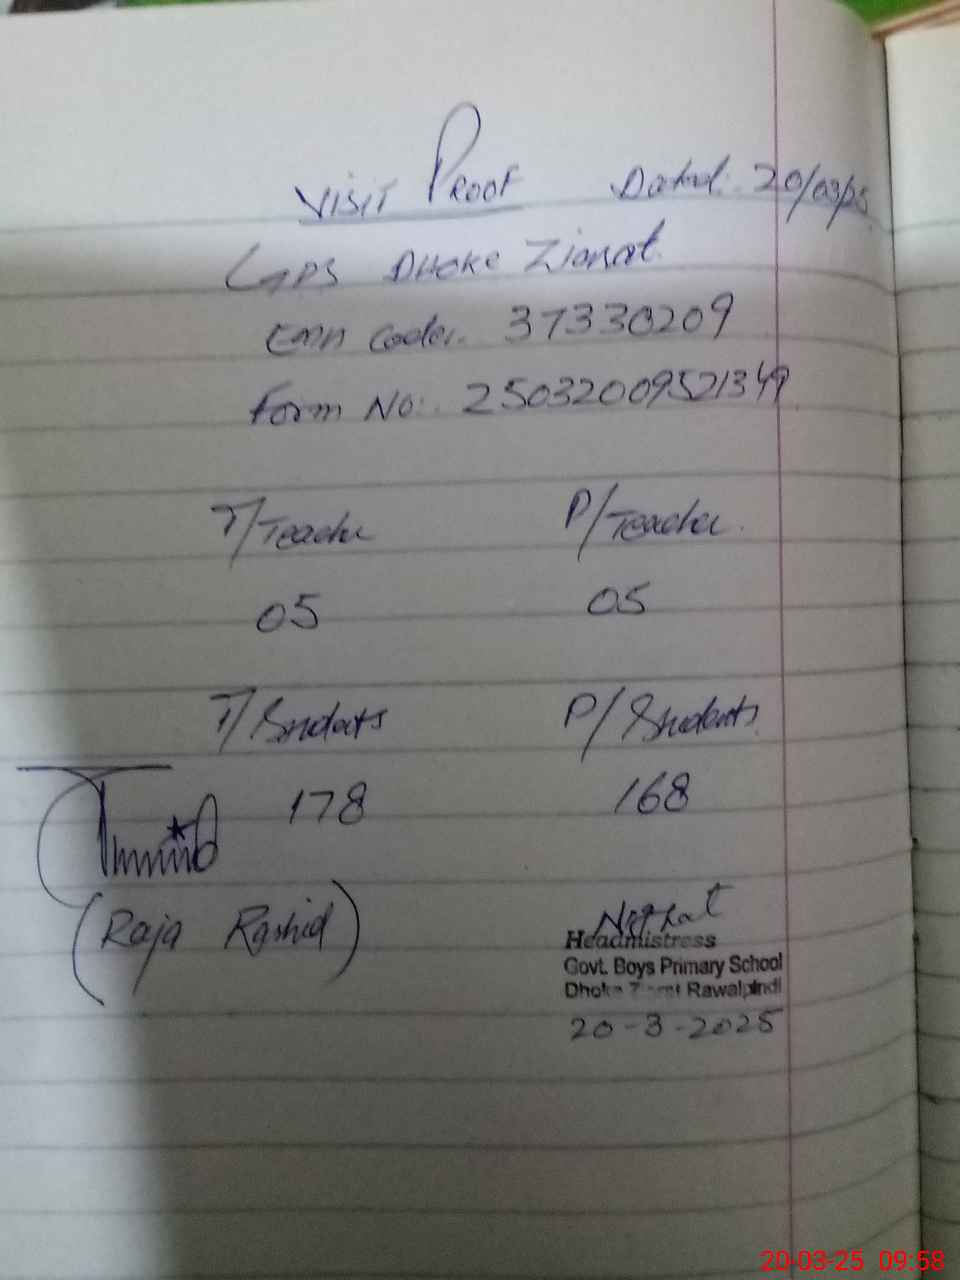 Visit Proof Dated: 20/03/25
GPS Dhoke Ziarat.
Emn Code:. 37330209
Form No:. 25032009521349
T/Teacher P/Teacher.
05 05
T/Students P/Students
178 168
(Raja Rashid)
Nusrat
Headmistress
Govt. Boys Primary School
Dhoke Ziarat Rawalpindi
20-3-2025
20-03-25 09:58